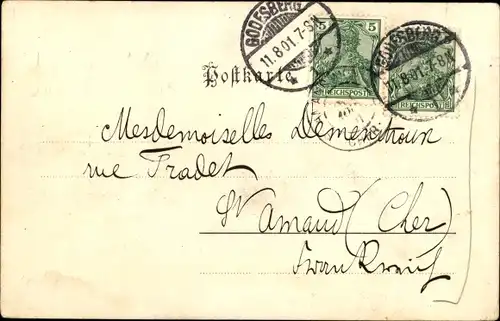 GODESBERG
11.8.01.7-8N
5 5
REICHSPOST
GODESBERG
8.01.7-8N
REICHSPOST
Postkarte
CHER
Mesdemoiselles Demenitroux
rue Pradet
St Amand (Cher)
Frankreich